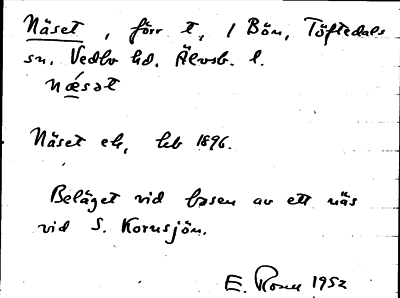 Näset, förr t, / Bön, Töftedals
sn. Vedbo hd. Älvsb. l.
næ̂sət
Näset ek, hb 1896.
Beläget vid basen av ett näs
vid S. Kornsjön.
E. 1952